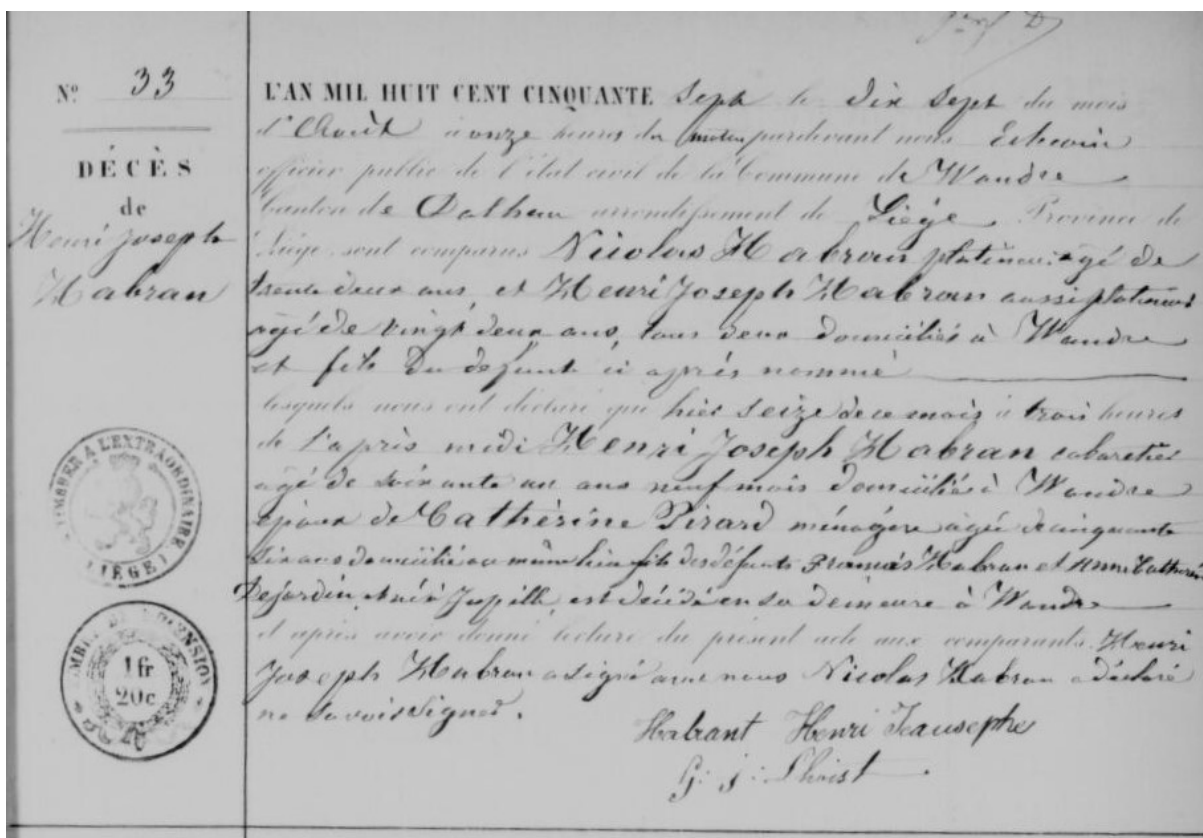 Nº 33
DÉCÈS
de
Henri Joseph
Habran
L'AN MIL HUIT CENT CINQUANTE sept le dix sept du mois
d'Août à onze heures du matin pardevant nous Echevin
officier public de l'état civil de la Commune de Wandre
Canton de Dalhem arrondissement de Liége Province de
Liége, sont comparus Nicolas Habran platineur agé de
trente deux ans, et Henri Joseph Habran aussi platineur
agé de vingt deux ans, tous deux domiciliés à Wandre
et fils du défunt ci après nommé
lesquels nous ont déclaré que hier seize de ce mois à trois heures
de l'après midi Henri Joseph Habran cabaretier
agé de soixante un ans neuf mois domicilié à Wandre
époux de Cathérine Pirard ménagère agée de cinquante
six ans domiciliée au même lieu fils des défunts François Habran et Anne Catherine
Dejardin, né à Jupille, est décédé en sa demeure à Wandre
et après avoir donné lecture du présent acte aux comparants Henri
Joseph Habran a signé avec nous Nicolas Habran a déclaré
ne savoir signer.
Habrant Henri Jeausephe
G: j: Lhoist
TIMBRER A L'EXTRAORDINAIRE
(LIÈGE)
1 fr
20c